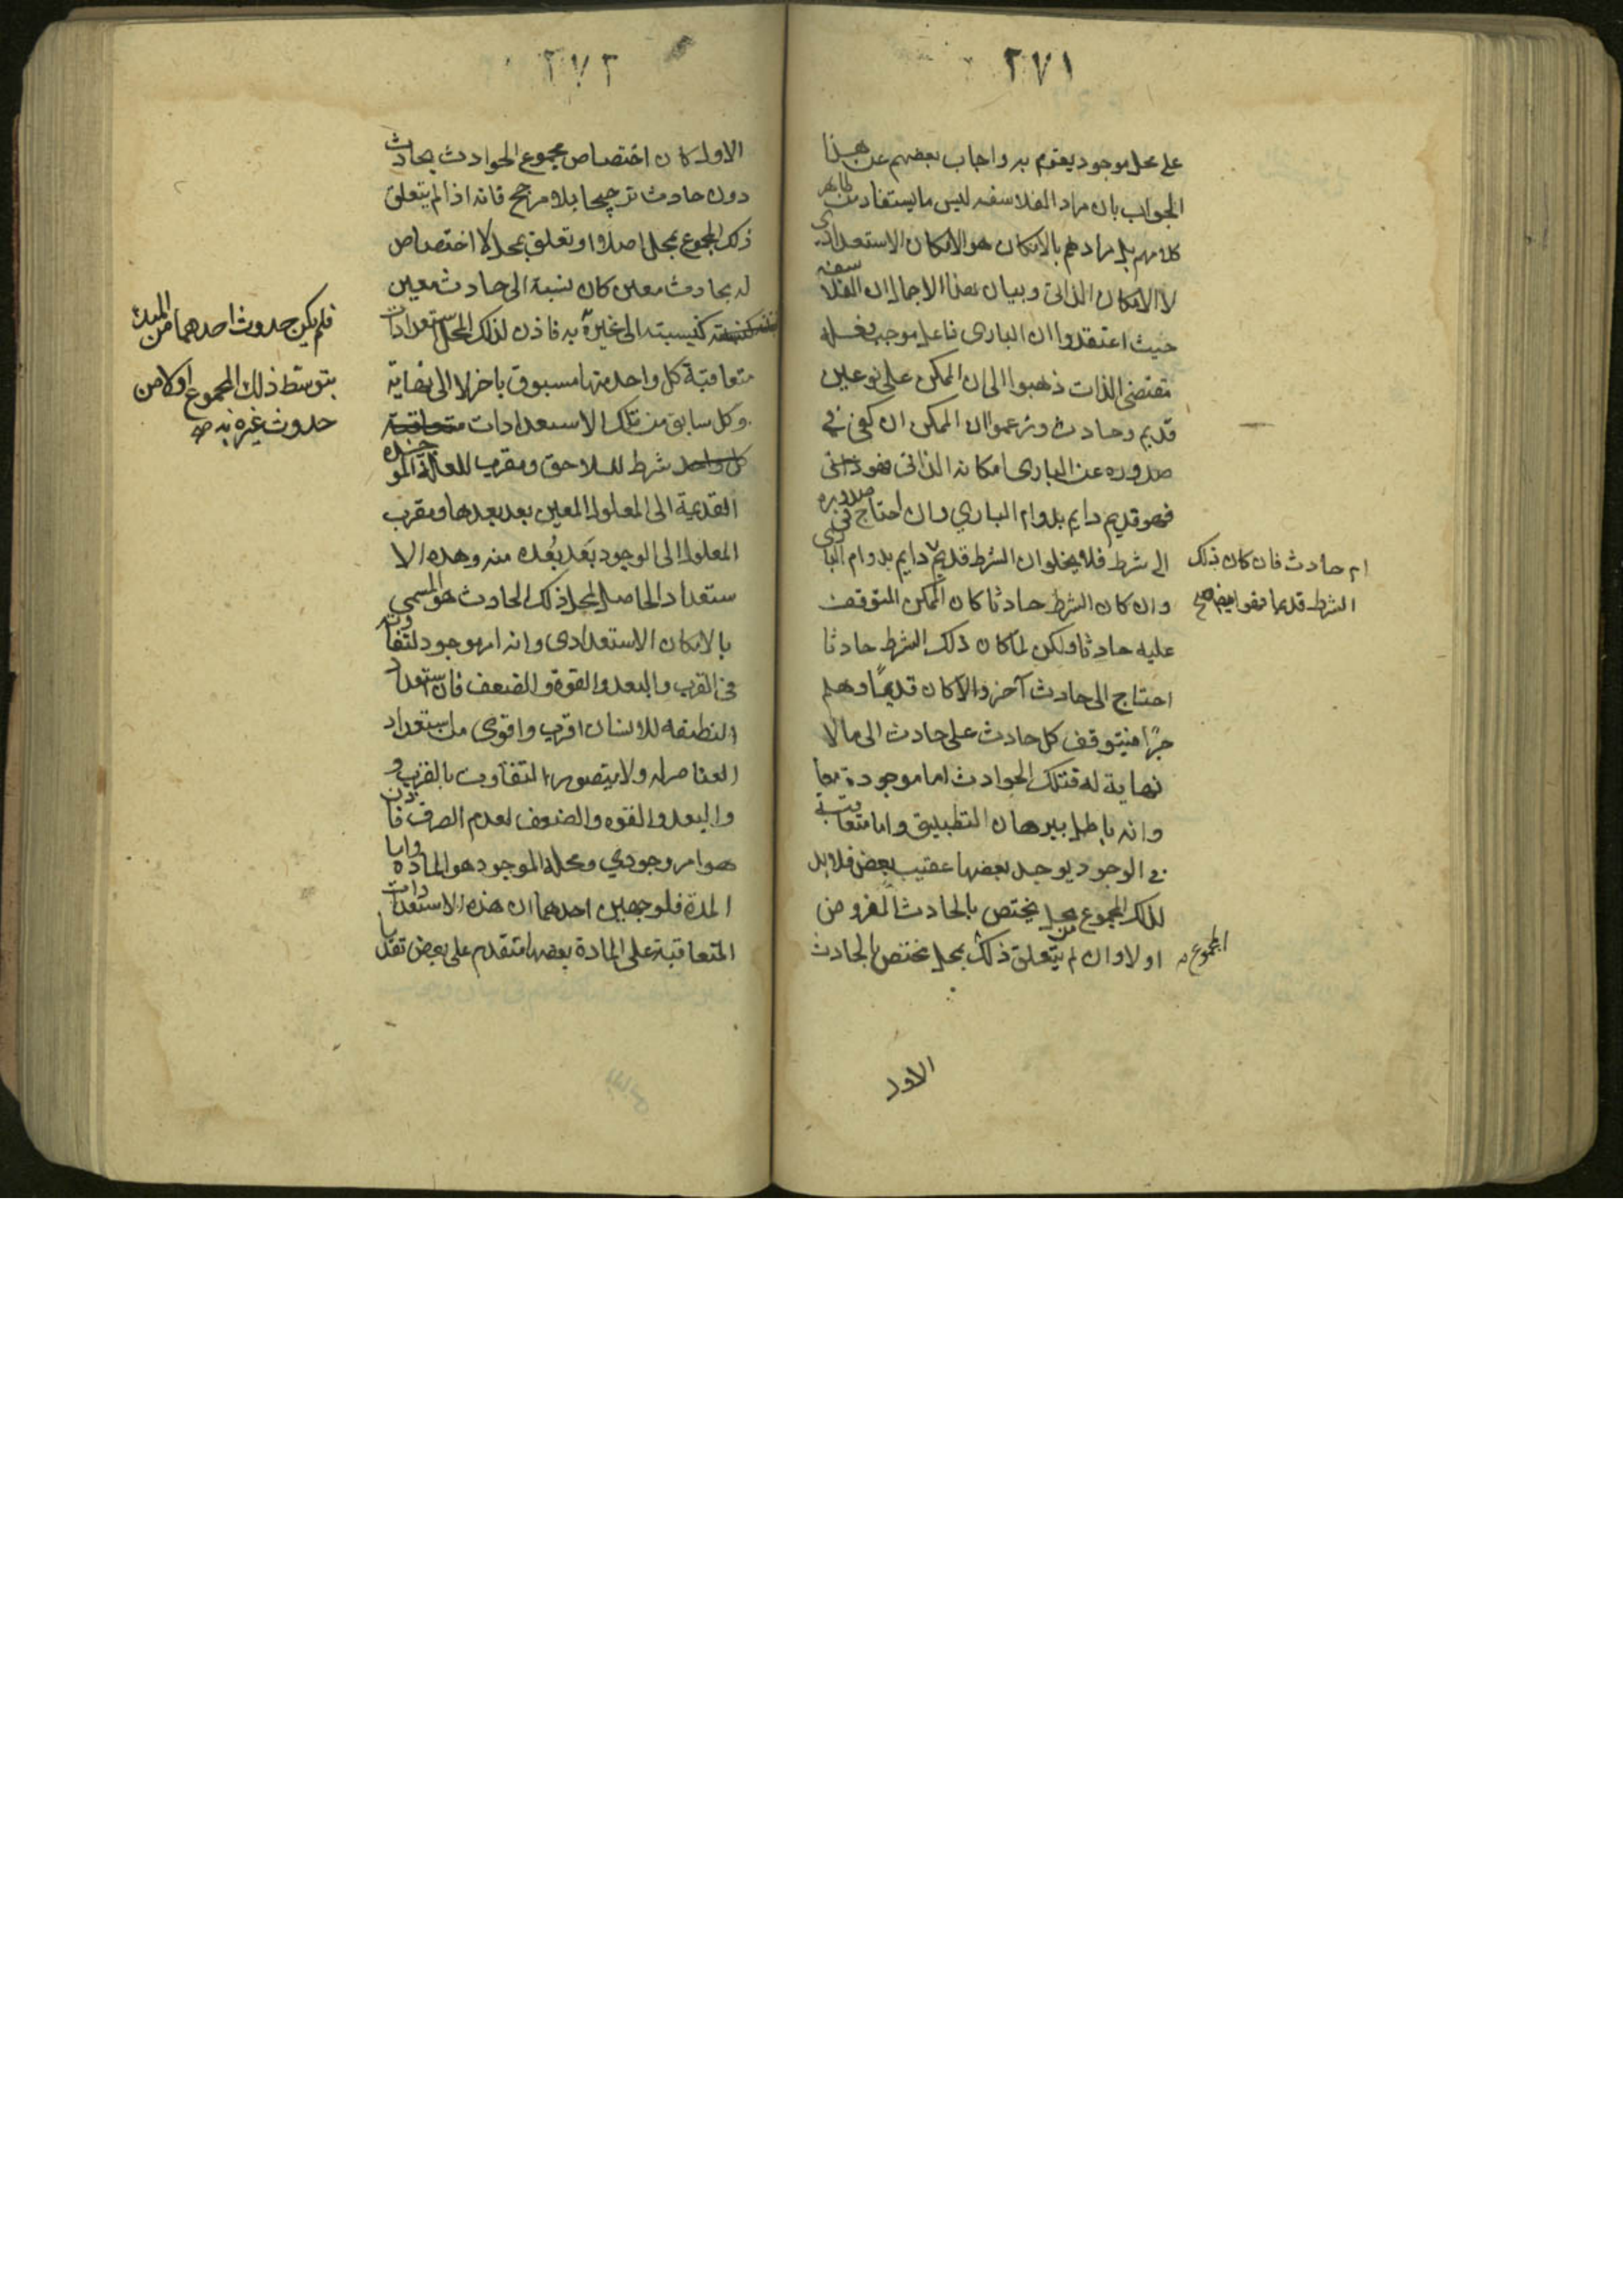 ٢٧١
على محل موجود يقوم به واجاب بعضهم عن هذا
الجواب بان مراد الفلاسفه ليس ما يستفاد من ظاهر
كلامهم بل مرادهم بالامكان هو الامكان الاستعدادي
لا الامكان الذاتي وبيان هذا الاجمال ان الفلاسفه
حيث اعتقدوا ان البارى فاعل موجب وفعله
مقتضى الذات ذهبوا الى ان الممكن على نوعين
قديم وحادث وزعموا ان الممكن ان كفى في
صدوره عن البارى امكانه الذاتى
فهو قديم دايم بدوام الباري وان احتاج في صدوره
الى شرط فلا يخلو ان الشرط قديم دايم بدوام البارى
ام حادث فان كان ذلك
الشرط قديما فهو ايضا صح
وان كان الشرط حادثا كان الممكن المتوقف
عليه حادثا ولكن لما كان ذلك الشرط حادثا
احتاج الى حادث آخر والا كان قديمًا وهلم
جرًا فيتوقف كل حادث على حادث الى ما لا
نهاية له فتلك الحوادث اما موجودة معا
وانه باطل ببرهان التطبيق واما متعاقبة
في الوجود يوجد بعضها عقيب بعض فلا بد
لذلك المجموع من محل يختص بالحادث المفروض
اولا وان لم يتعلق ذلك بمحل مختص بالحادث
المجموع
الاول
٢٧٢
الاول كان اختصاص مجموع الحوادث بحادث
دون حادث ترجيحا بلا مرجح فانه اذا لم يتعلق
ذلك المجموع بمحل اصلا او تعلق بمحل لا اختصاص
له بحادث معين كان نسبة الى حادث معين
كنسبته الى غيره به فاذن لذلك المحل استعدادات
فلم يكن حدوث احدهما من المبدء
بتوسط ذلك المجموع اولا من
حدوث غيره به صح
متعاقبة كل واحد منها مسبوق باخر لا الى نهاية
وكل سابق من تلك الاستعدادات متعاقبة
كل واحد شرط للاحق ومقرب للعلة الموجده
القديمة الى المعلول المعين بعد بعدها ومقرب
المعلول الى الوجود بَعد بُعده منه وهذه الا
ستعداد الحاصل لمحل ذلك الحادث هو المسمى
بالامكان الاستعدادى وانه امر موجود لتفاوته
فى القرب والبعد والقوة والضعف فان استعداد
النطفه للانسان اقرب واقوى من استعداد
العناصر له ولا يتصور التفاوت بالقرب و
والبعد والقوه والضعف لعدم الصرف فاذن
هو امر وجودي ومحله الموجود هو المادة واما
المدة فلوجهين احدهما ان هذه الاستعدادات
المتعاقبة على المادة بعضها متقدم على بعض تقدما